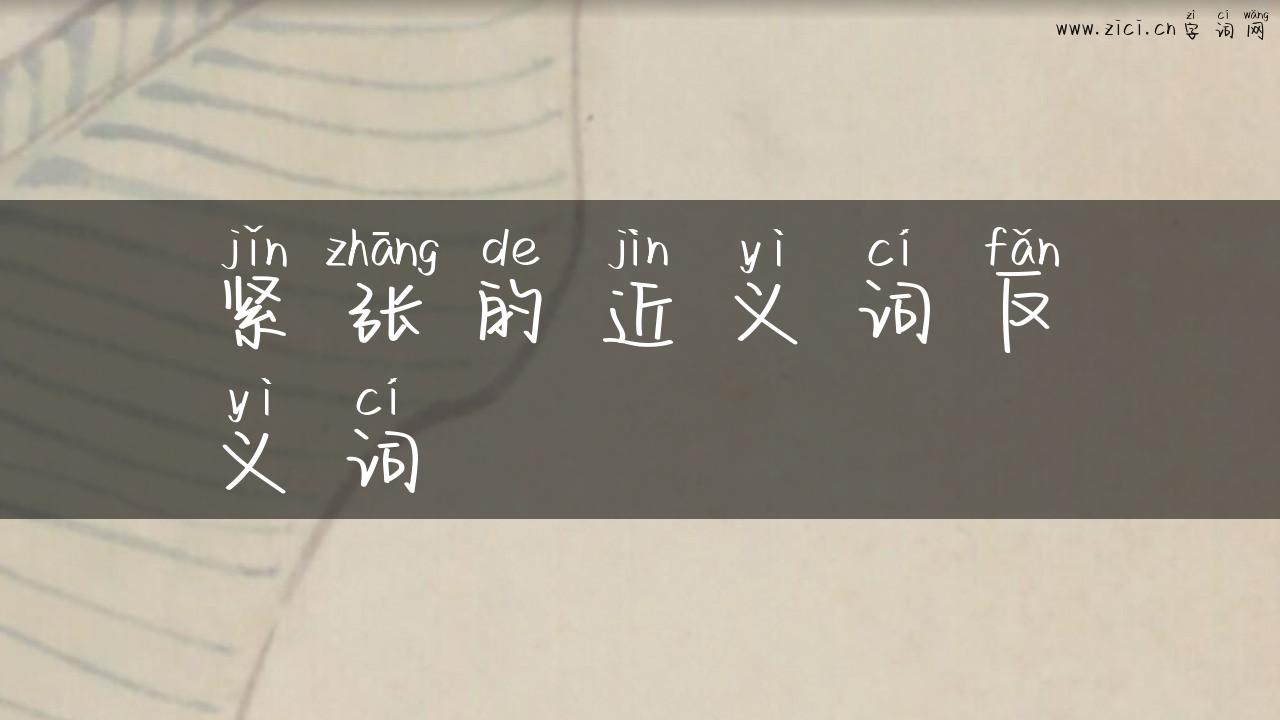 zì cí wǎng
www.zici.cn字词网
jǐn zhāng de jìn yì cí fǎn
紧张的近义词反
yì cí
义词